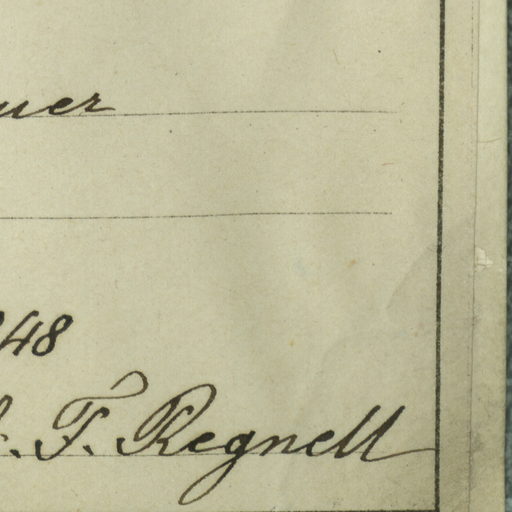 uer
48
F. Regnell